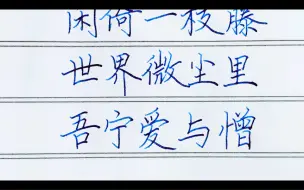 困倚一枝藤
世界微尘里
吾宁爱与憎